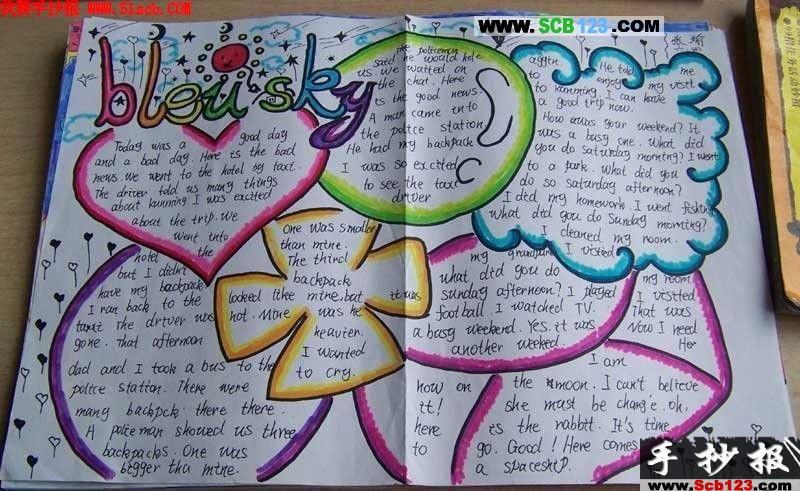 秋赛手抄报 www.51scb.com
www.SCB123.com
bleu sky
Today was a good day
and a bad day. Here is the bad
news. we went to the hotel by taxi.
The driver told us many things
about kunming I was excited
about the trip. We
went into
the
hotel
but I didn't
have my backpack
I ran back to the
taxi the driver was
gone. That afternoon
dad and I took a bus to the
police station. There were
many backpck there there.
A police man showed us three
backpacks. One was
bigger tha mine.
One was smaller
than mine.
The third
backpack
looked like mine. but it was
not. Mine was he
heavier.
I wanted
to cry.
the policeman
said he would hele
us. We waited on
the chat. Here
is the good news.
A man came into
the police station
He had my backpack
I was so excited
to see the taxi
driver
again He told me
to enjoy my visit
to kunming. I can have
a good trip now.
How was your weekend? It
was a busy one. What did
you do saturday morning? I went
to a park. What did you
do so saturday afternoon?
I did my homework. I went fishing
what did you do Sunday morning?
I cleaned my room.
I visited
my grandparents
what did you do
sunday afternoon? I played
football. I watched TV.
a busy weekend. Yes. it was
another weeked.
my room
I visited
That was
Now I need
Her
I am
now on the moon. I can't believe
it! she must be chang'e. oh,
here is the rabbit. It's time
to go. Good! Here comes
a spaceship.
手抄报
www.Scb123.com